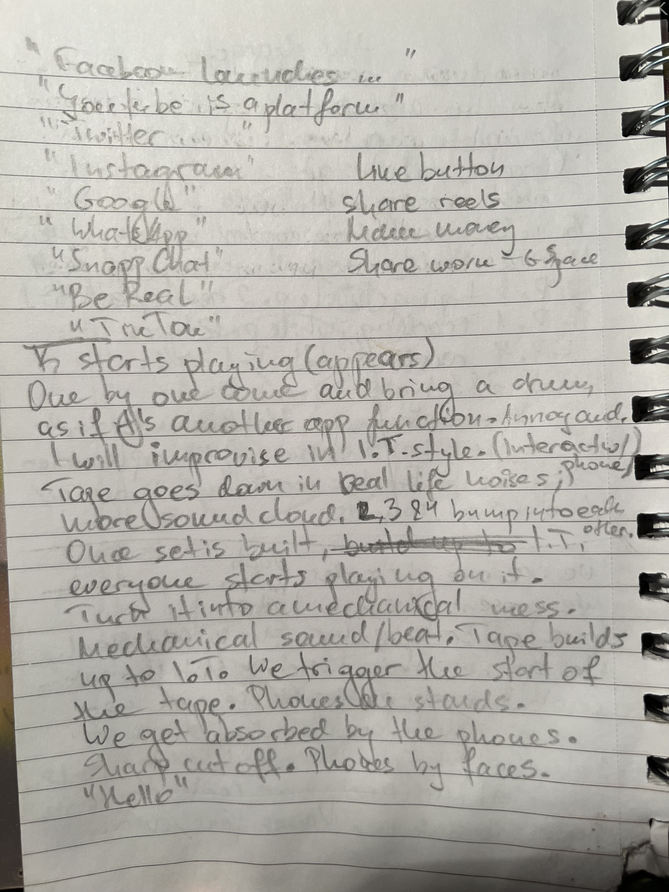 "Facebook launches in "
"Youtube is a platform"
"Twitter ... "
"Instagram" Live button
"Google" share reels
"WhatsApp" Make money
"SnappChat" Share work - G Space
"Be Real"
"TikTok"
starts playing (appears)
One by one come and bring a drum,
as if it's another app function. Annoy aud.
I will improvise in I.T. style. (Interactiv)
Tape goes down in real life noises, phone,
more soundcloud. 2, 3 & 4 bump into each
other.
Once set is built, build up to I.T,
everyone starts playing on it.
Turn it into a mechanical mess.
Mechanical sound/beat. Tape builds
up to I.T. We trigger the start of
the tape. Phones on stands.
We get absorbed by the phones.
Sharp cut off. Phones by faces.
"Hello"